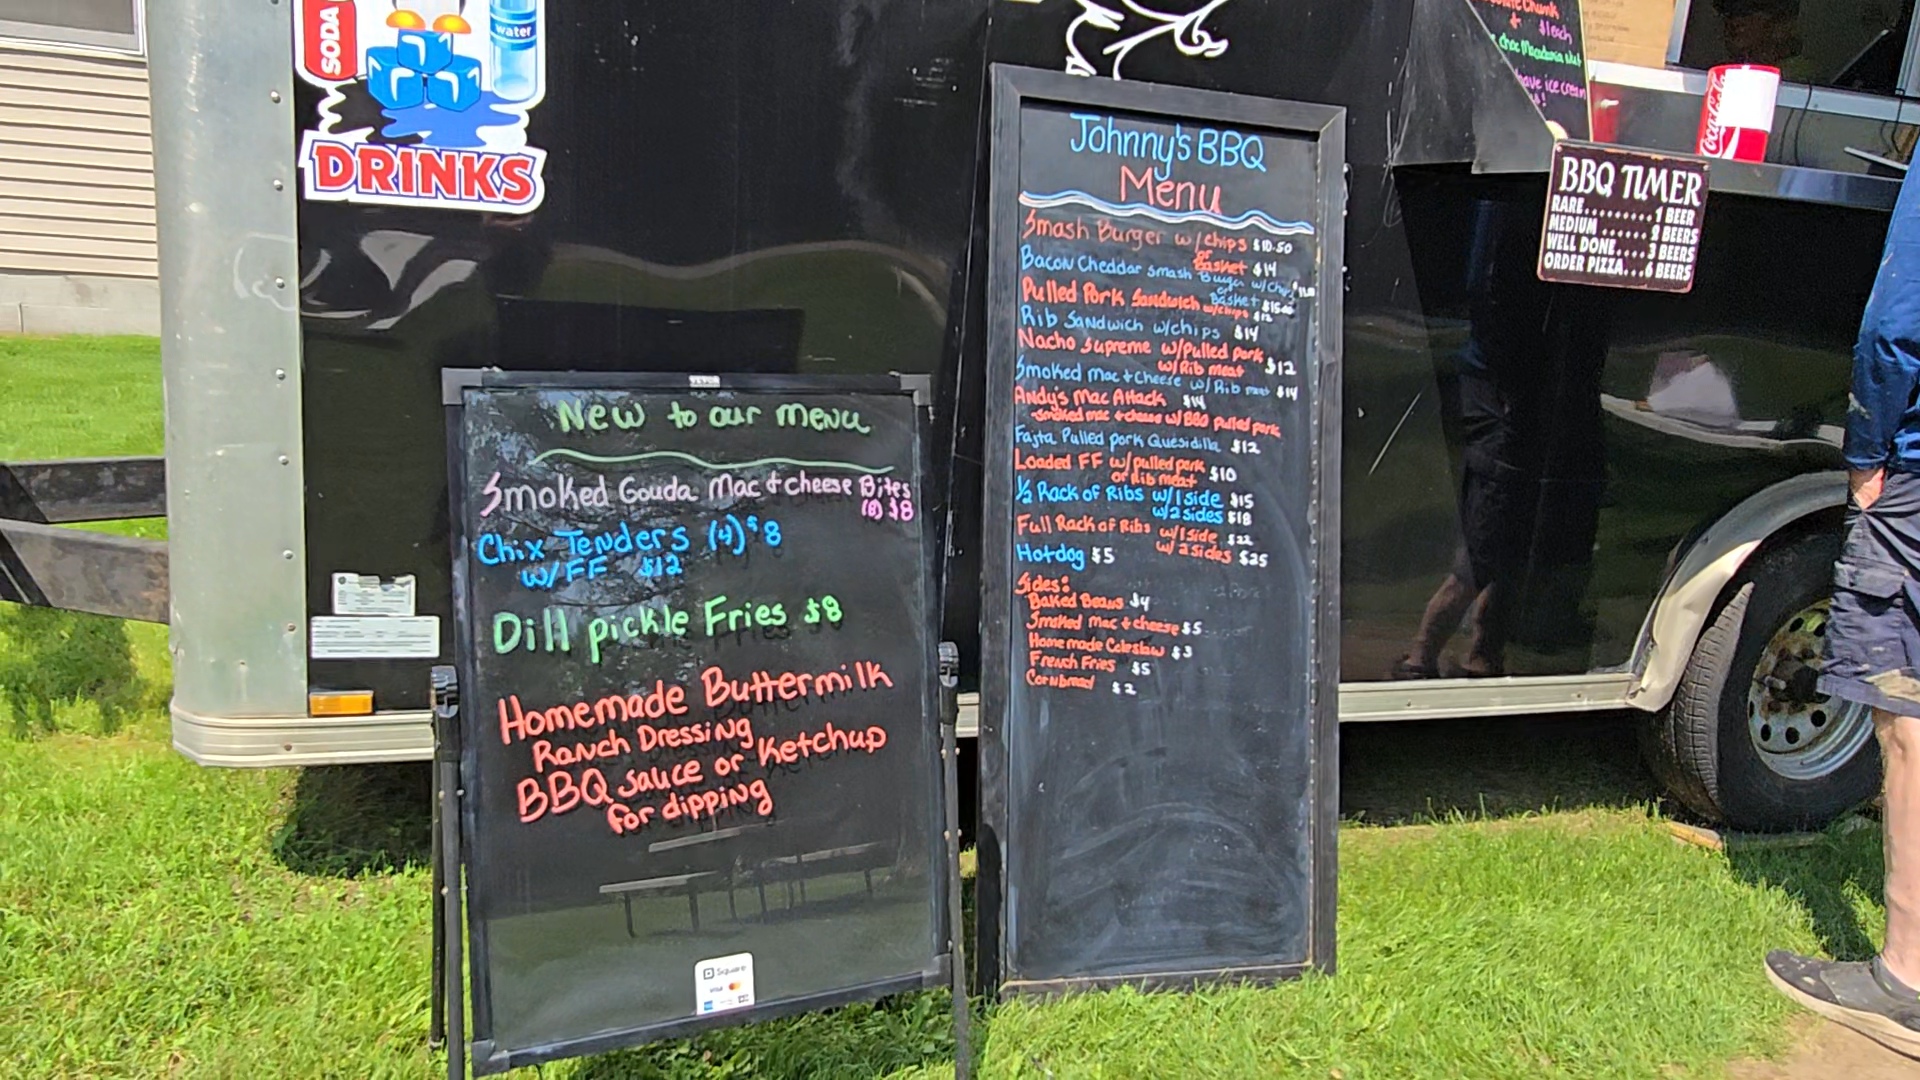 SODA
water
DRINKS
New to our menu
Smoked Gouda Mac + cheese Bites
(8) $8
Chix Tenders (4) $8
w/FF $12
Dill pickle Fries $8
Homemade Buttermilk
Ranch Dressing
BBQ sauce or Ketchup
for dipping
Square
VISA
Johnny's BBQ
Menu
Smash Burger w/chips $10.50
or Basket $14
Bacon Cheddar Smash Burger w/Chips
or Basket
Pulled Pork Sandwich w/chips $12
Rib Sandwich w/chips $14
Nacho Supreme w/Pulled pork
w/Rib meat $12
Smoked Mac + Cheese w/ Rib meat $14
Andy's Mac Attack $14
-smoked mac + cheese w/ BBQ pulled pork
Fajta Pulled pork Quesidilla $12
Loaded FF w/pulled pork
or Rib meat $10
1/2 Rack of Ribs w/1 side $15
w/2 sides $18
Full Rack of Ribs w/1side $22
w/2 sides $25
Hotdog $5
Sides:
Baked Beans $4
Smoked mac + cheese $5
Homemade Coleslaw $3
French Fries $5
Cornbread $2
Chunk
+
$1each
choc Macadamia Nut
have ice cream
Coca-Cola
BBQ TIMER
RARE.........1 BEER
MEDIUM ......2 BEERS
WELL DONE.....3 BEERS
ORDER PIZZA...6 BEERS